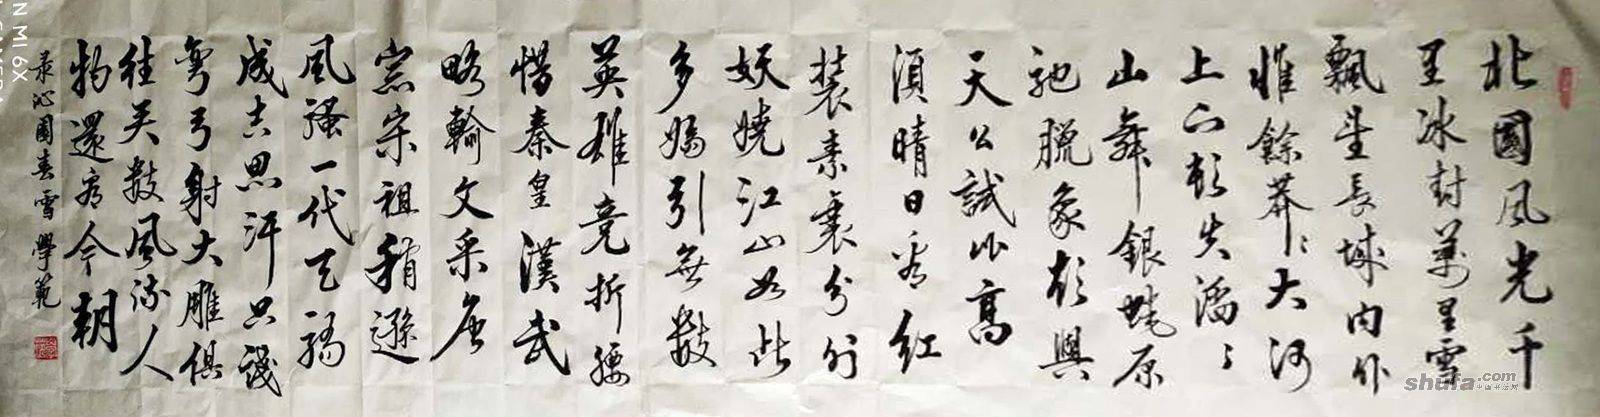 北國風光千
里冰封萬里雪
飄望長城内外
惟餘莽〻大河
上下頓失滔〻
山舞銀蛇原
馳脱象欲與
天公試比高
須晴日看紅
裝素裹分外
妖嬈江山如此
多嬌引無數
英雄竞折腰
惜秦皇漢武
略輸文采唐
宗宋祖稍遜
風騷一代天驕
成吉思汗只識
彎弓射大雕俱
往矣數風流人
物還看今朝
录沁園春雪 學範
N MI 6X
shufa.com
中国书法网